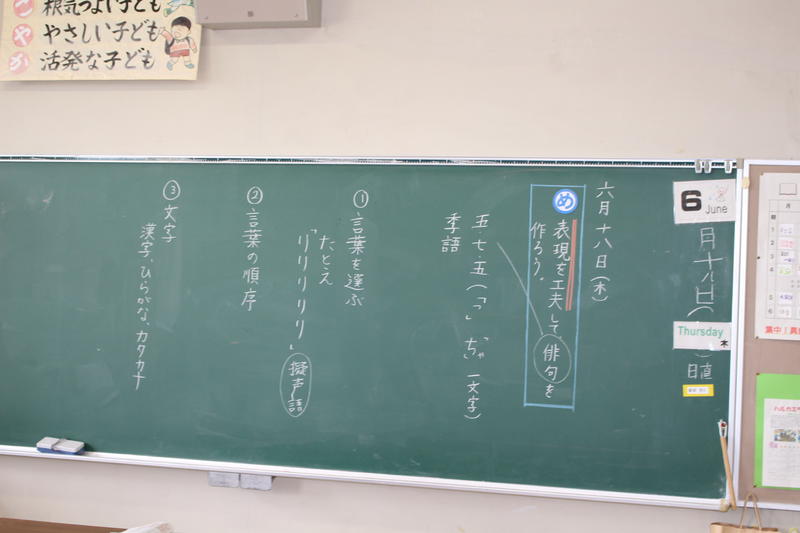 こ 根気づよい子ども
や やさしい子ども
か 活発な子ども
六月十八日(木)
め 表現を工夫して俳句を
作ろう。
五・七・五(「っ」「ちゃ」一文字)
季語
① 言葉を選ぶ
たとえ
「リリリリリ」擬声語
② 言葉の順序
③ 文字
漢字、ひらがな、カタカナ
6 June
月十八日(
Thursday 木
)
日直
月
1
2
3
4
5
集中!真
ハルカエ